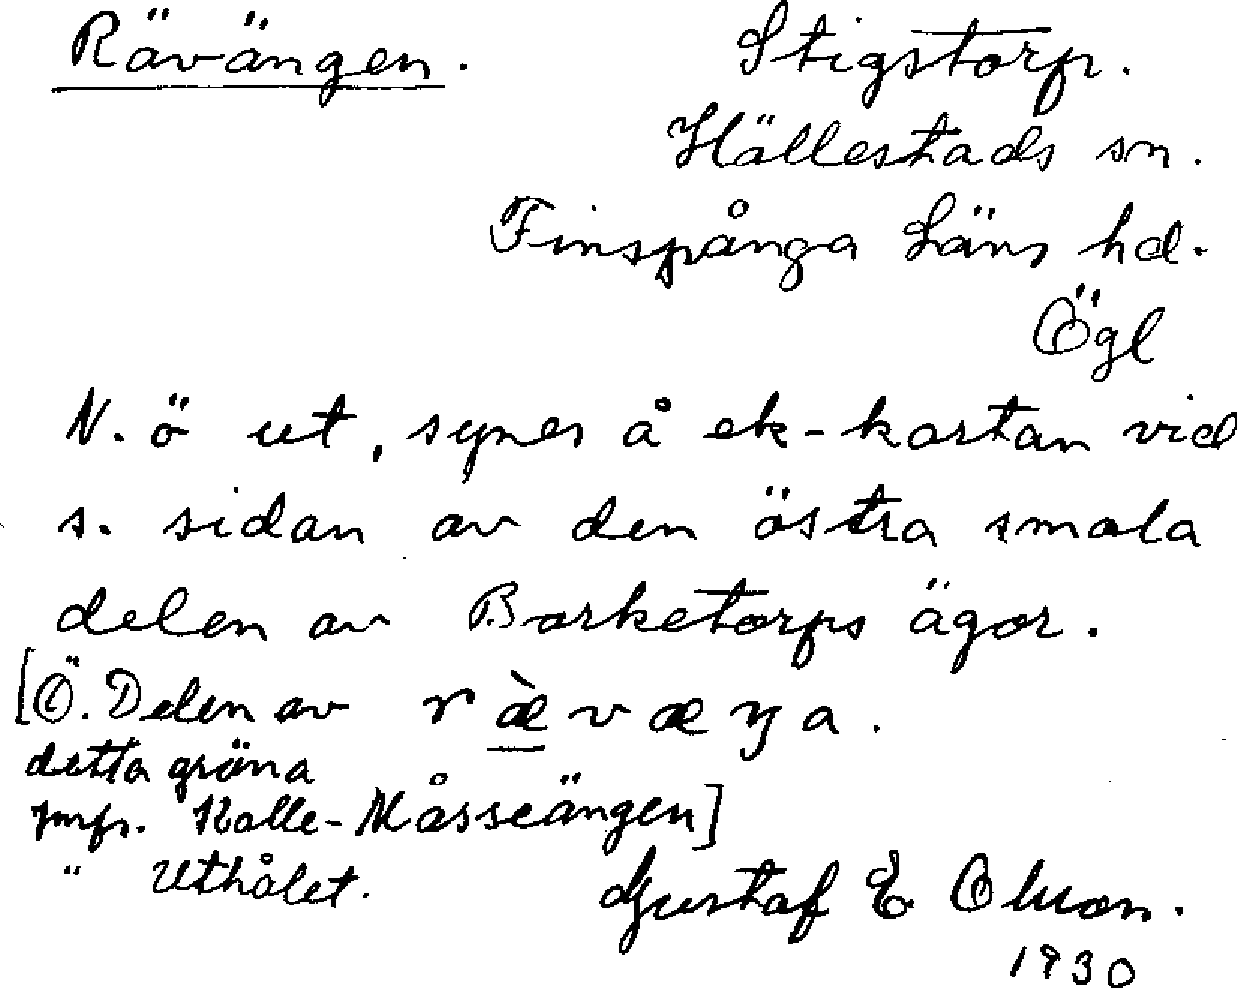 Rävängen. Stigstorp.
Hällestads sn.
Finspånga Läns hd.
Ögl
N. ö ut, synes å ek-kartan vid
s. sidan av den östra smala
delen av Borketorps ägor.
[Ö. Delen av ræ̀væŋa.
detta gröna
jmfr. Kalle-Måsseängen]
" Uthålet.
Gustaf E Olsson.
1930